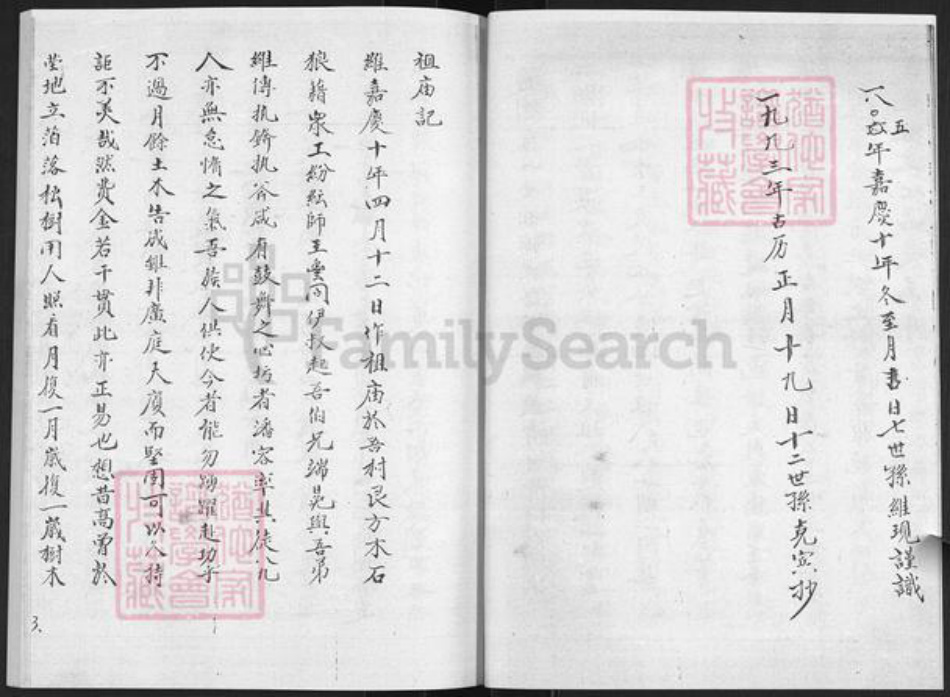 一八〇五年嘉慶十年冬至月 日七世孫維現謹識
一九九三年古历正月十九日十二世孫克宾抄
祖庙記
維嘉慶十年四月十二日作祖庙於吾村艮方木石
狼藉衆工紛紜師王 同伊扶起吾伯兄端晃與吾弟
維傳执 执斧咸有鼓舞之心 者潘容率其徒八九
人亦無怠惰之氣吾族人供使令者能勿踴躍赴功乎
不過月餘土木告成雖非廣庭大廈而堅固可以久持
詎不美哉然費金若干貫此亦正易也想昔高曾於
塋地立 落松樹用人照看月復一月歲復一歲樹木
3.
FamilySearch